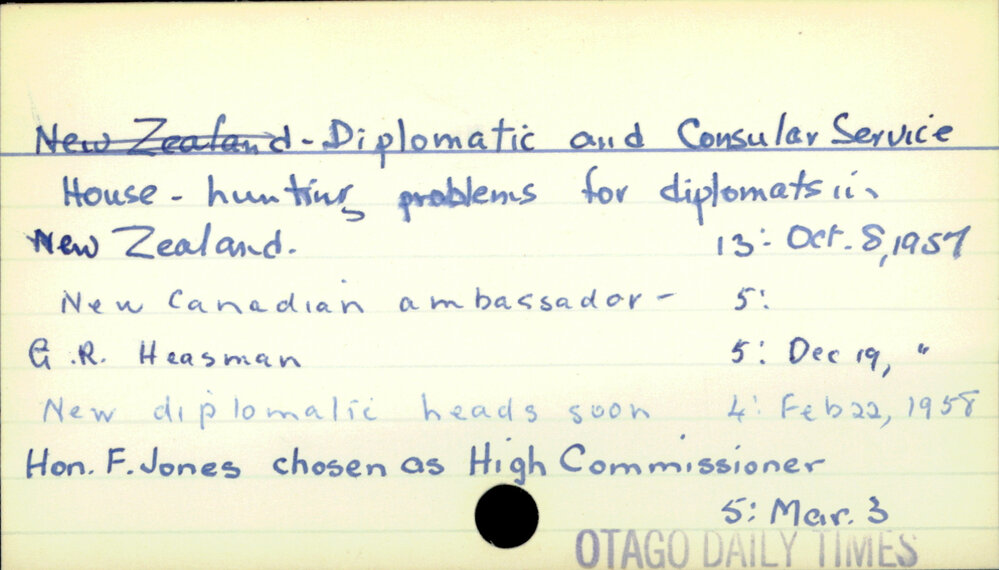 New Zealand - Diplomatic and Consular Service
House - hunting problems for diplomats in
New Zealand. 13: Oct. 8, 1957
New Canadian ambassador - 5:
G.R. Heasman 5: Dec 19, "
New diplomatic heads soon 4: Feb 22, 1958
Hon. F. Jones chosen as High Commissioner
5: Mar. 3
OTAGO DAILY TIMES